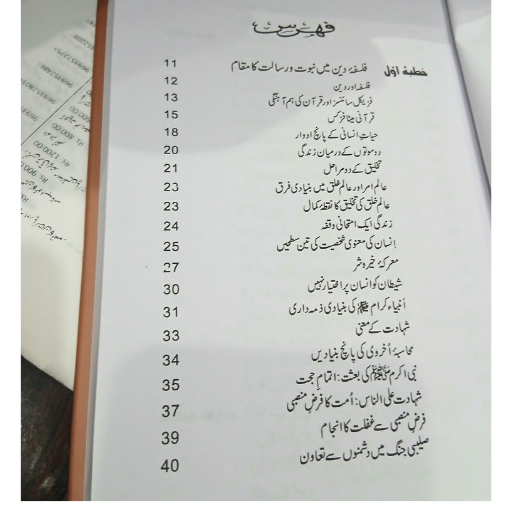 فہرست
خطبۂ اوّل فلسفۂ دین میں نبوت و رسالت کا مقام 11
فلسفہ اور دین 12
فزیکل سائنسز اور قرآن کی ہم آہنگی 13
قرآنی میٹا فزکس 15
حیاتِ انسانی کے پانچ ادوار 18
دو موتوں کے درمیان زندگی 20
تخلیق کے دو مراحل 21
عالمِ امر اور عالمِ خلق میں بنیادی فرق 23
عالمِ خلق کی تخلیق کا نقطۂ کمال 23
زندگی ایک امتحانی وقفہ 24
انسان کی معنوی شخصیت کی تین سطحیں 25
معرکۂ خیر و شر 27
شیطان کو انسان پر اختیار نہیں 30
انبیاء کرام کی بنیادی ذمہ داری 31
شہادت کے معنی 33
محاسبۂ اُخروی کی پانچ بنیادیں 34
نبی اکرم ﷺ کی بعثت: اتمامِ حجت 35
شہادت علی الناس: اُمت کا فرضِ منصبی 37
فرضِ منصبی سے غفلت کا انجام 39
صلیبی جنگ میں دشمنوں سے تعاون 40